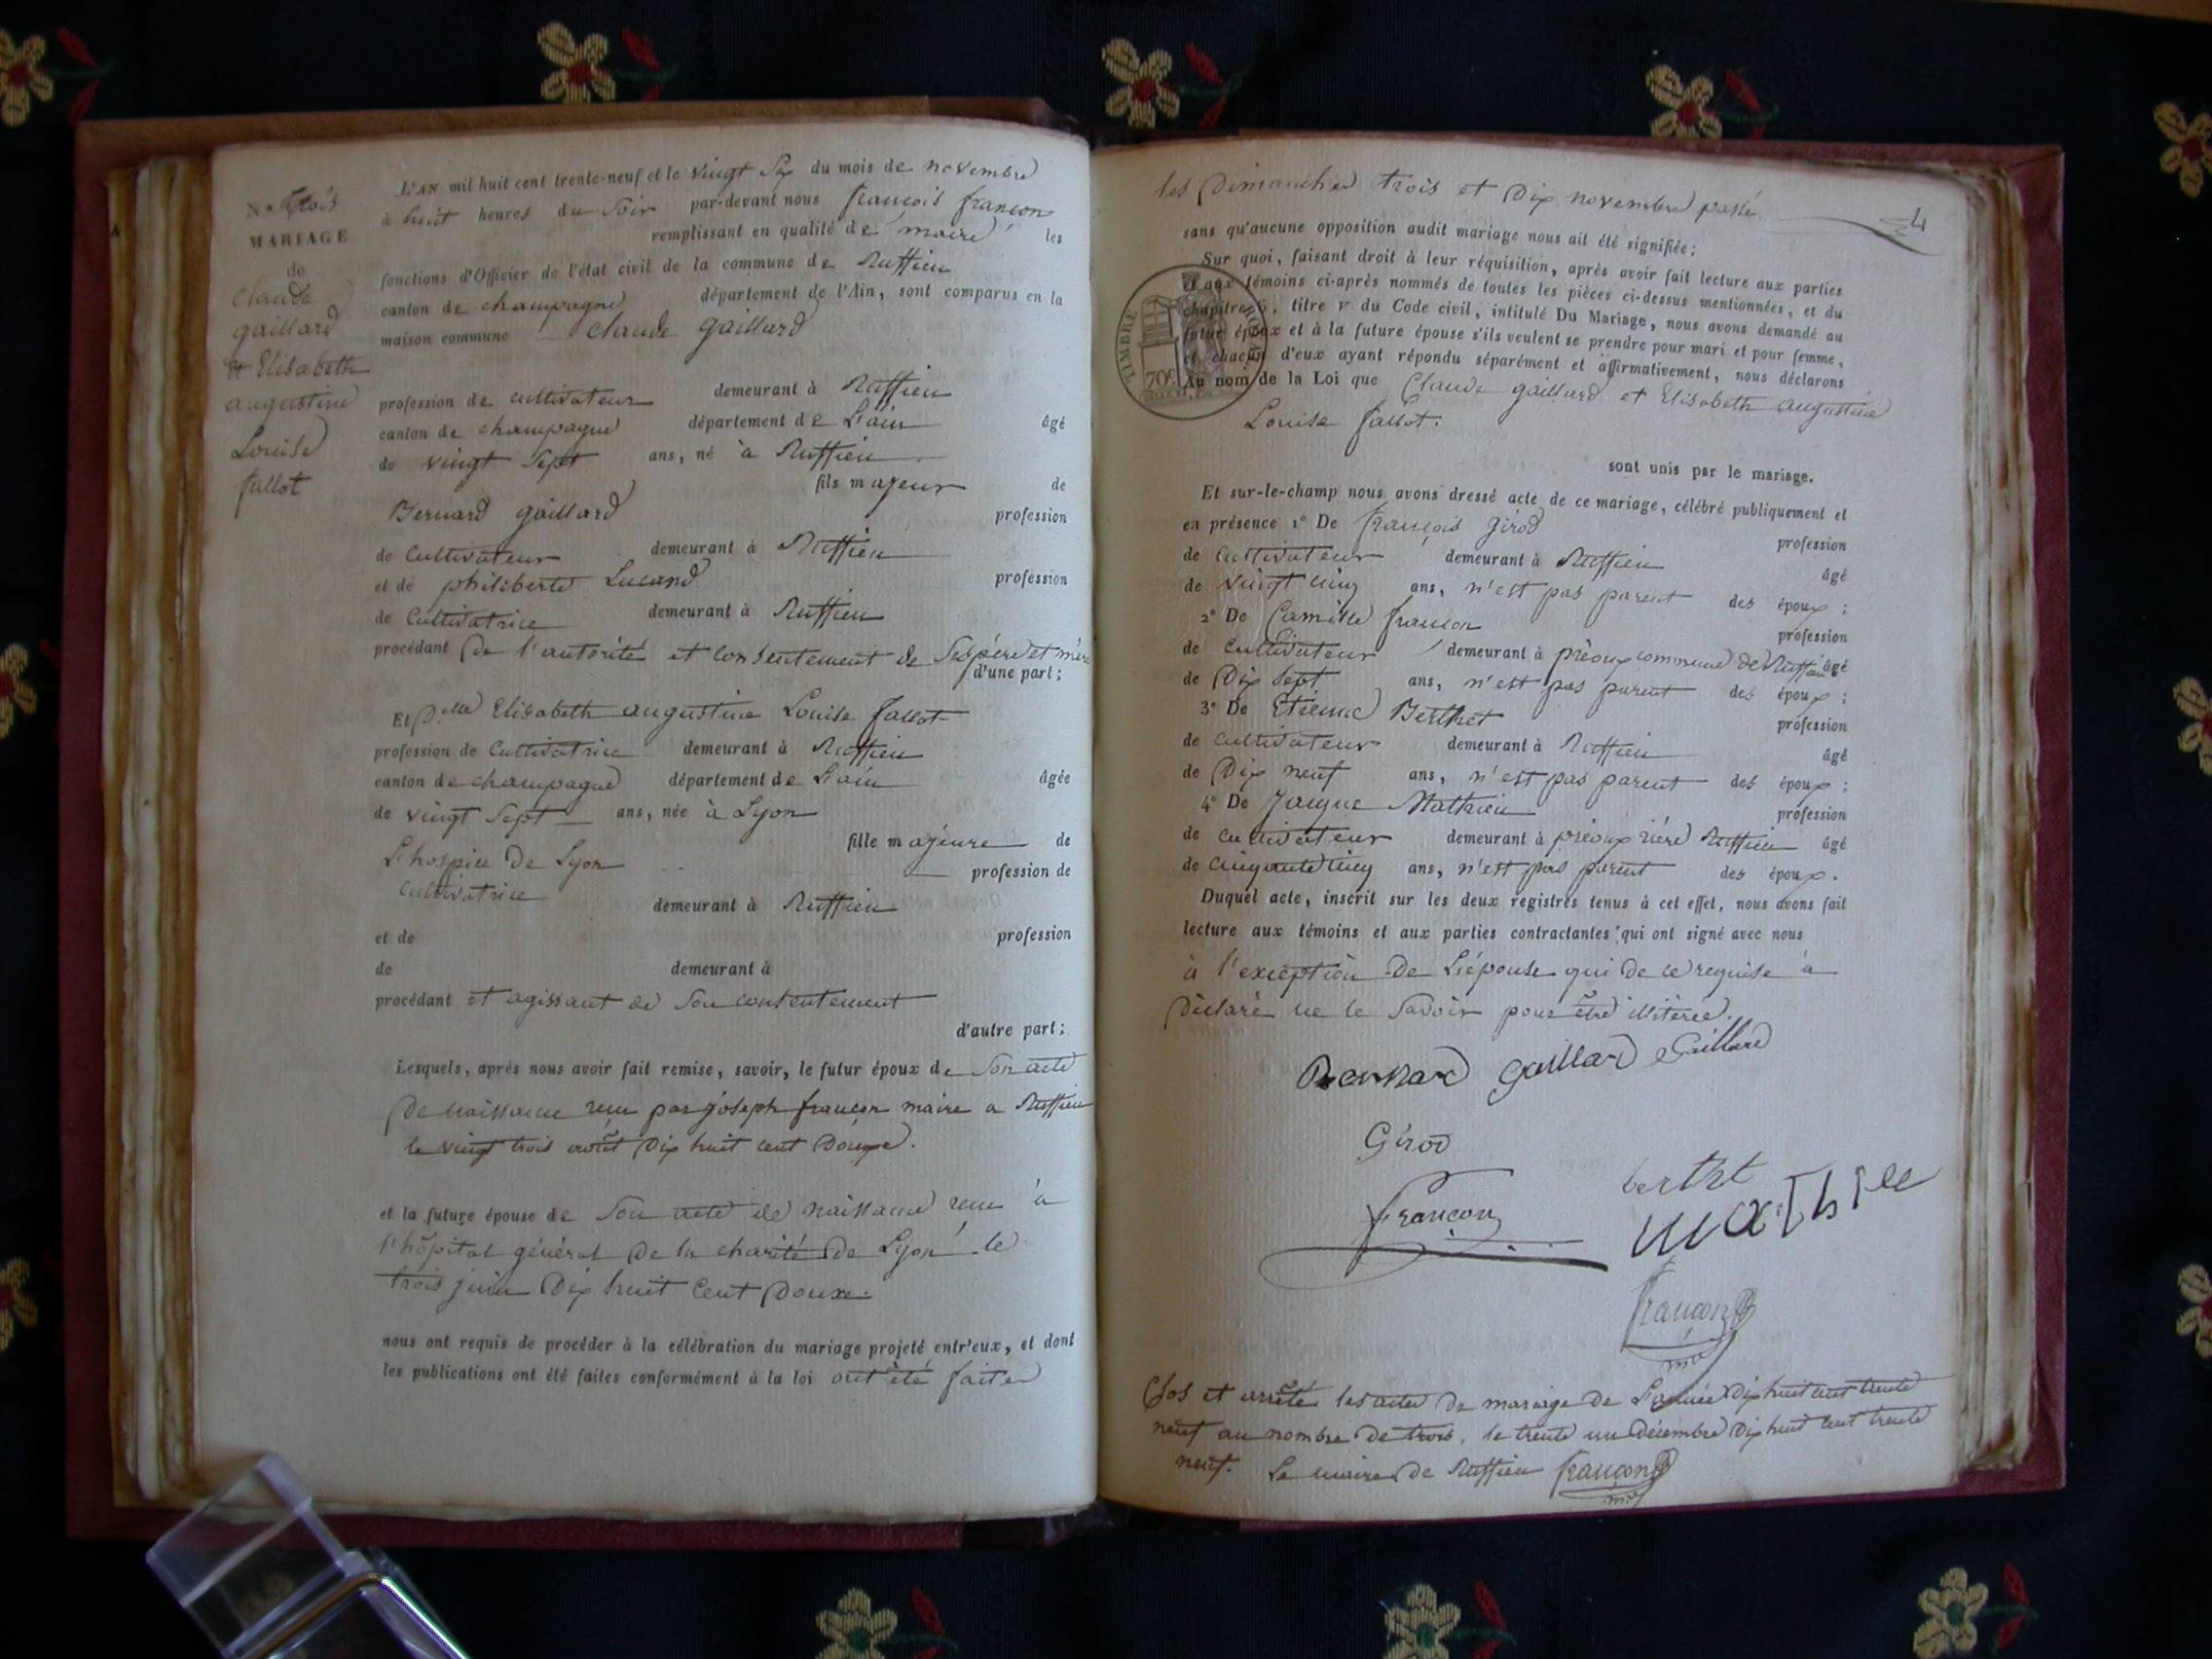 N.o trois
MARIAGE
de
Claude
gaillard
et Elisabeth
augustine
Louise
fallot
L'AN mil huit cent trente-neuf et le vingt Six du mois de novembre
à huit heures du Soir par-devant nous françois françon
remplissant en qualité de maire les
fonctions d'Officier de l'état civil de la commune de Ruffieu
canton de champagne département de l'Ain, sont comparus en la
maison commune Claude gaillard
profession de cultivateur demeurant à Ruffieu
canton de champagne département de L'ain âgé
de vingt Sept ans, né à Ruffieu
fils majeur de
Bernard gaillard profession
de Cultivateur demeurant à Ruffieu
et de philiberte Lucand profession
de Cultivatrice demeurant à Ruffieu
procédant De l'autorité et consentement de Ses père et mère
d'une part;
Et D.elle Elisabeth augustine Louise fallot
profession de Cultivatrice demeurant à Ruffieu
canton de champagne département de L'ain âgée
de vingt Sept ans, née à Lyon
fille majeure de
L'hospice De Lyon profession de
cultivatrice demeurant à Ruffieu
et de profession
de demeurant à
procédant et agissant de Son consentement
d'autre part;
Lesquels, après nous avoir fait remise, savoir, le futur époux de Son acte
De naissance reçu par joseph françon maire a Ruffieu
le vingt trois août Dix huit cent Douze.
et la future épouse de Son acte de naissance reçu à
l'hôpital général De la charité de Lyon le
trois juin Dix huit Cent Douze.
nous ont requis de procéder à la célébration du mariage projeté entr'eux, et dont
les publications ont été faites conformément à la loi ont été faites
les Dimanches trois et Dix novembre passé
4
sans qu'aucune opposition audit mariage nous ait été signifiée;
Sur quoi, faisant droit à leur réquisition, après avoir fait lecture aux parties
et aux témoins ci-après nommés de toutes les pièces ci-dessus mentionnées, et du
chapitre 6, titre v du Code civil, intitulé Du Mariage, nous avons demandé au
futur époux et à la future épouse s'ils veulent se prendre pour mari et pour femme,
et chacun d'eux ayant répondu séparément et affirmativement, nous déclarons
Au nom de la Loi que Claude gaillard et Elisabeth augustine
Louise fallot.
TIMBRE ROYAL
70c
sont unis par le mariage.
Et sur-le-champ nous avons dressé acte de ce mariage, célébré publiquement et
en présence 1° De françois girod profession
de cultivateur demeurant à Ruffieu âgé
de vingt cinq ans, n'est pas parent des époux;
2° De Camille françon profession
de cultivateur demeurant à prèoux commune de Ruffieu âgé
de Dix Sept ans, n'est pas parent des époux;
3° De Etienne Berthet profession
de cultivateur demeurant à Ruffieu âgé
de Dix neuf ans, n'est pas parent des époux;
4° De Jacque Mathieu profession
de cultivateur demeurant à prèoux rière Ruffieu âgé
de cinquante cinq ans, n'est pas parent des époux.
Duquel acte, inscrit sur les deux registres tenus à cet effet, nous avons fait
lecture aux témoins et aux parties contractantes qui ont signé avec nous
à l'exception De L'épouse qui de ce requise a
Déclaré ne le Savoir pour être illiterée.
Bernard gaillard Gaillard
Girod
berthet
françon
françon
mre
Clos et arrêté les actes de mariage de L'année Dix huit cent trente
neuf au nombre de trois. le trente un Décembre Dix huit cent trente
neuf. Le maire de Ruffieu françon
mre